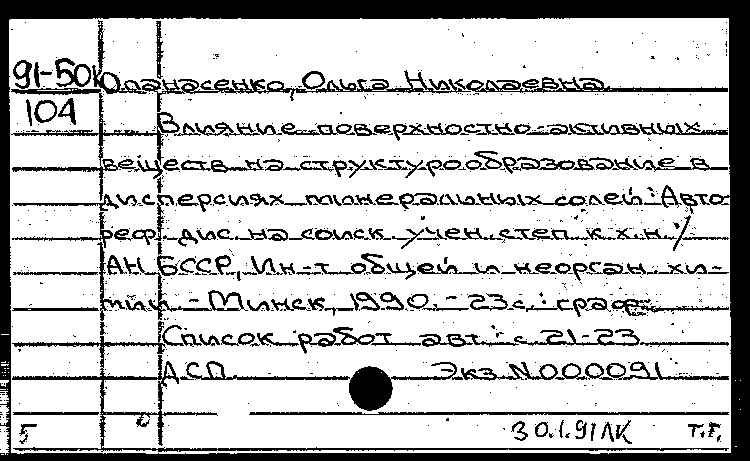 91-50к Опанасенко, Ольга Николаевна
104
Влияние поверхностно-активных
веществ на структурообразование в
дисперсиях минеральных солей : Авто-
реф. дис. на соиск. учен. степ. к.х.н. /
АН БССР, Ин-т общей и неорган. хи-
мии. - Минск, 1990. - 23 с. : граф.
Список работ авт.: с. 21-23
ДСП. Экз. N 000091
5 30.1.91 ЛК Т.Г.